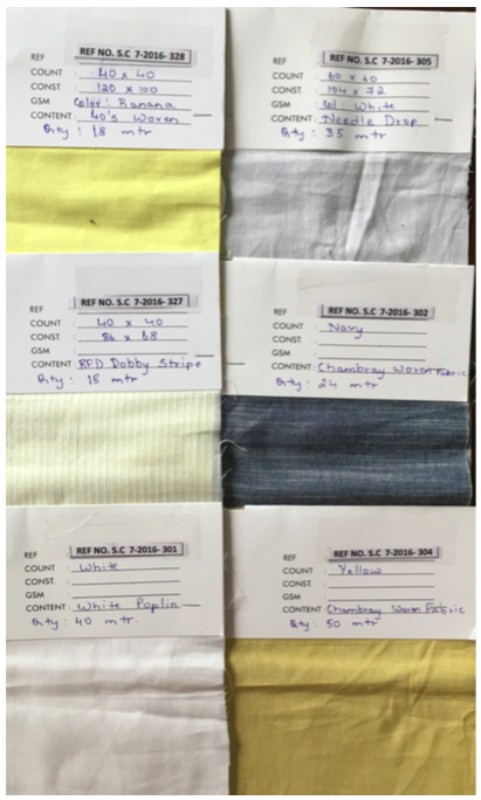 REF REF NO. S.C 7-2016-328
COUNT 40 x 40
CONST. 120 x 100
GSM Color: Banana
CONTENT: 40's Woven
Qty: 18 mtr
REF REF NO. S.C 7-2016-305
COUNT 60 x 60
CONST. 104 x 72
GSM Col: White
CONTENT: Needle Drop
Qty: 35 mtr
REF REF NO. S.C 7-2016-327
COUNT 40 x 40
CONST. 86 x 68
GSM
CONTENT: RFD Dobby Stripe
Qty: 18 mtr
REF REF NO. S.C 7-2016-302
COUNT Navy
CONST.
GSM
CONTENT: Chambray Woven Fabric
Qty: 24 mtr
REF REF NO. S.C 7-2016-301
COUNT White
CONST.
GSM
CONTENT: White Poplin
Qty: 40 mtr.
REF REF NO. S.C 7-2016-304
COUNT Yellow
CONST.
GSM
CONTENT: Chambray Woven Fabric
Qty: 50 mtr